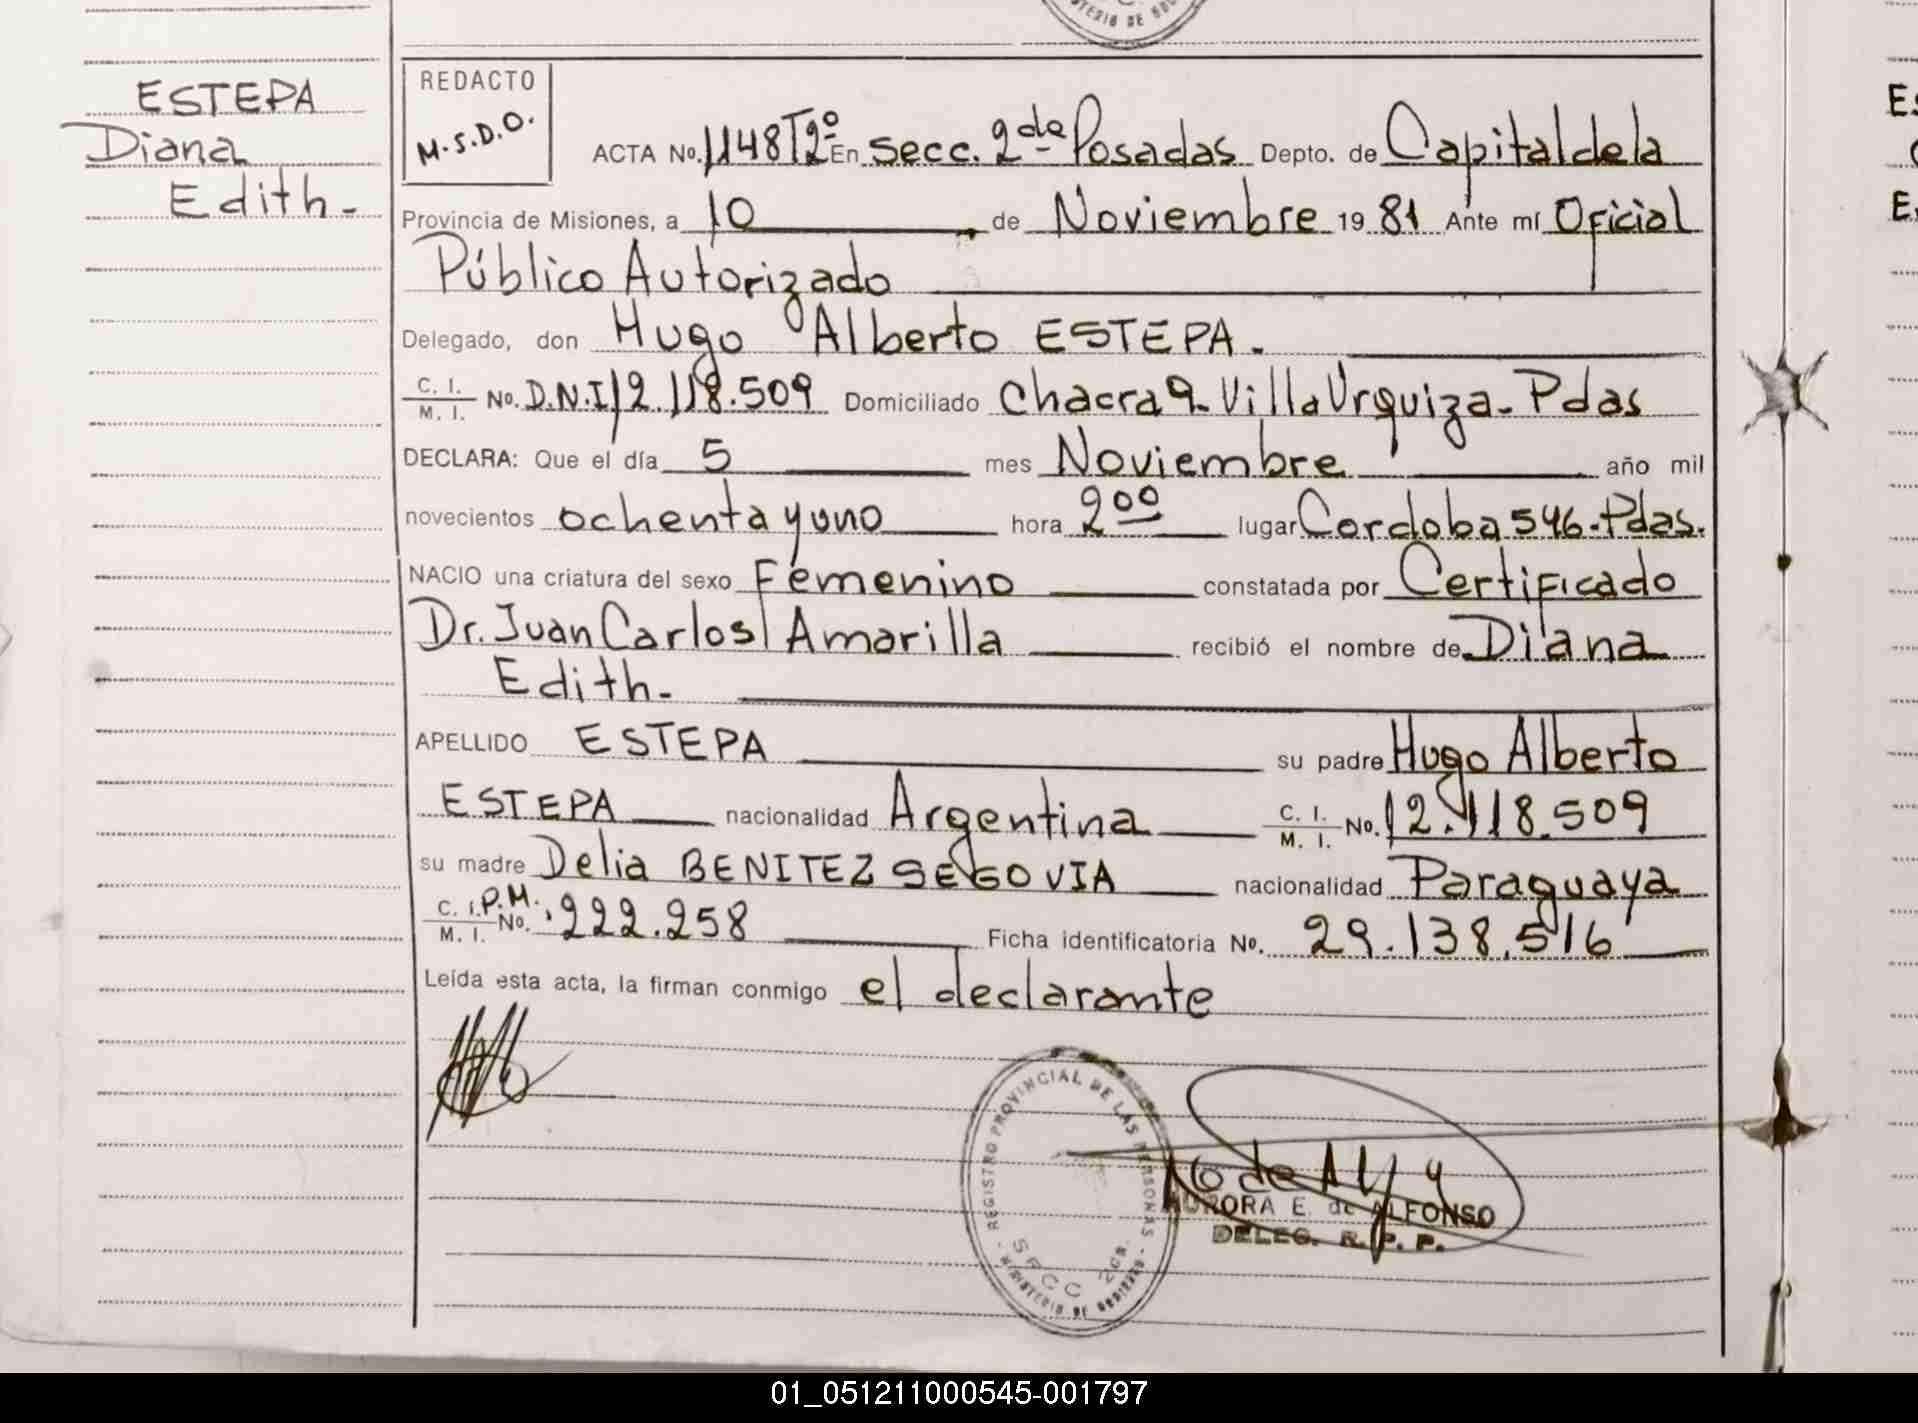 ESTEPA
Diana
Edith-
REDACTO
M.S.D.O.
ACTA No. 1148 T2º En secc. 2da Posadas Depto. de Capital de la
Provincia de Misiones, a 10 de Noviembre 19 81 Ante mí Oficial
Público Autorizado
Delegado, don Hugo Alberto ESTEPA.
C. I. / M. I. No. D.N.I 12.118.509 Domiciliado Chacra 9-Villa Urquiza-Pdas
DECLARA: Que el día 5 mes Noviembre año mil
novecientos ochenta y uno hora 2 00 lugar Cordoba 546-Pdas.
NACIO una criatura del sexo Femenino constatada por Certificado
Dr. Juan Carlos Amarilla recibió el nombre de Diana
Edith-
APELLIDO ESTEPA su padre Hugo Alberto
ESTEPA nacionalidad Argentina C. I. / M. I. No. 12.118.509
su madre Delia BENITEZ SEGOVIA nacionalidad Paraguaya
C. I. / M. I. P.M. No. 222.258 Ficha identificatoria No. 29.138.516
Leída esta acta, la firman conmigo el declarante
REGISTRO PROVINCIAL DE LAS PERSONAS
SECC 2da.
MINISTERIO DE GOBIERNO
AURORA E. de ALFONSO
DELEG. R. P. P.
01_051211000545-001797